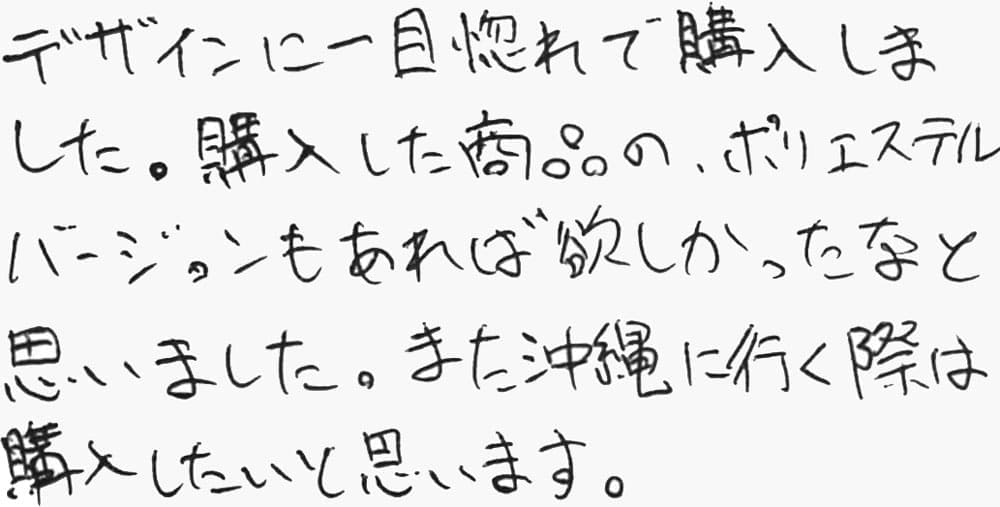 デザインに一目惚れで購入しま
した。購入した商品の、ポリエステル
バージョンもあれば欲しかったなと
思いました。また沖縄に行く際は
購入したいと思います。